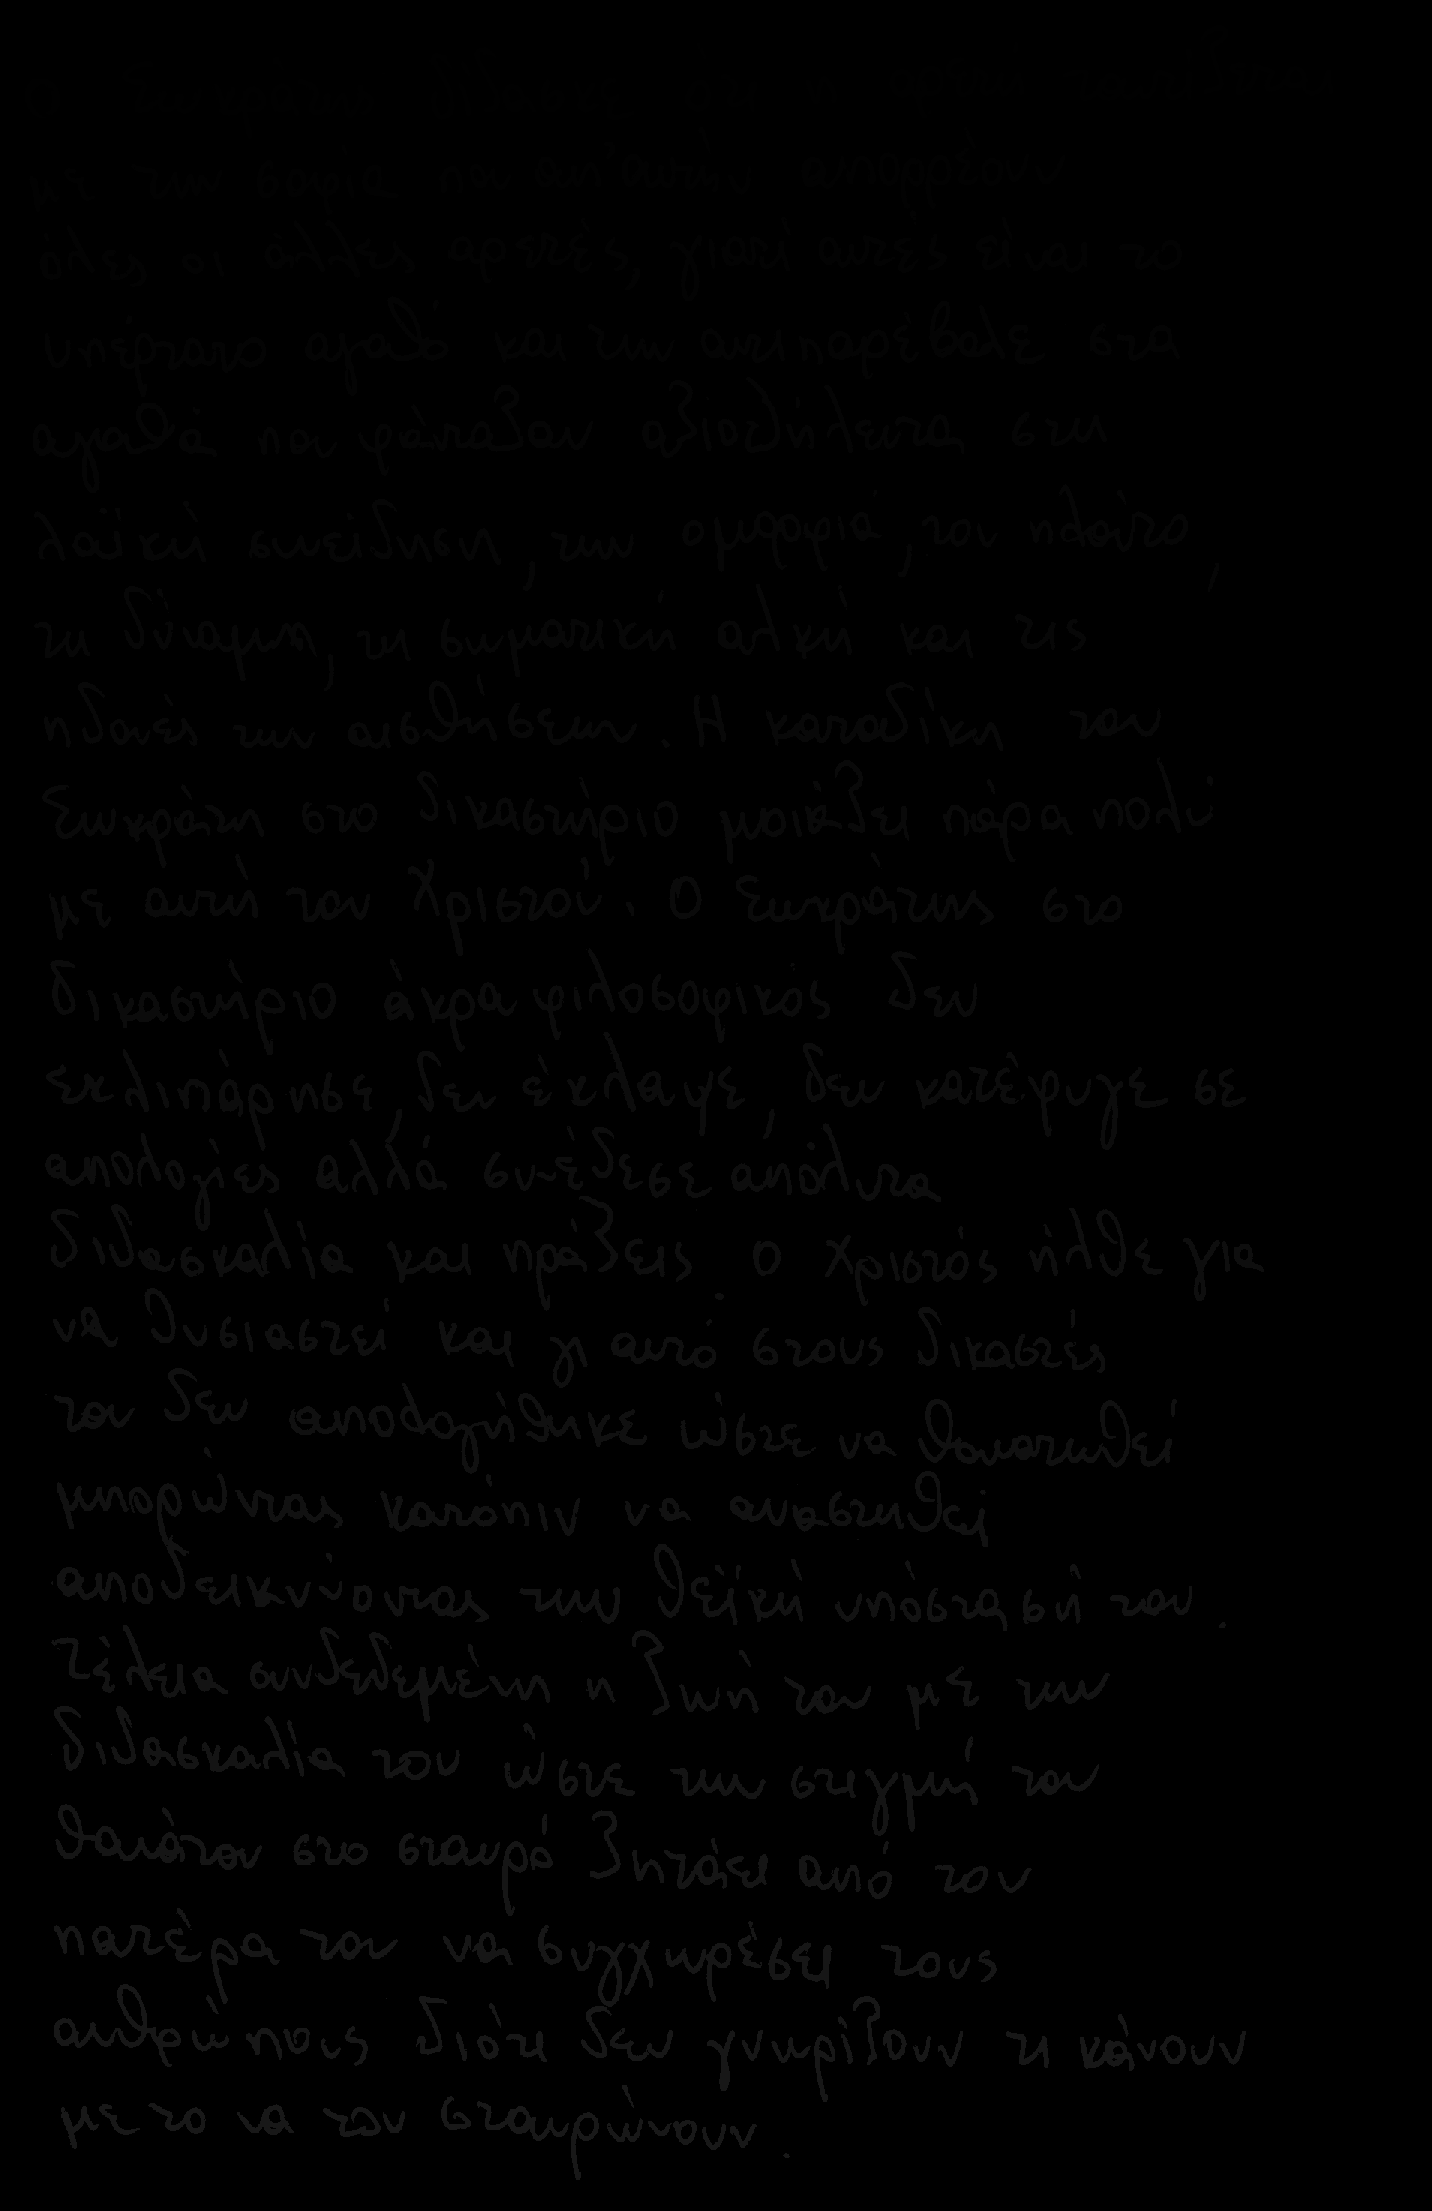 με την σοφία που απ' αυτήν απορρέουν
όλες οι άλλες αρετές, γιατί αυτές είναι το
υπέρτατο αγαθό και την αντιπαρέβαλε στα
αγαθά που φάνταζαν αξιοζήλευτα στη
λαϊκή συνείδηση, την ομορφιά, τον πλούτο,
τη δύναμη, τη σωματική αλκή και τις
ηδονές των αισθήσεων. Η καταδίκη του
Σωκράτη στο δικαστήριο μοιάζει πάρα πολύ
με αυτή του Χριστού. Ο Σωκράτης στο
δικαστήριο άκρα φιλοσοφικός δεν
εκλιπάρησε, δεν έκλαψε, δεν κατέφυγε σε
απολογίες αλλά συνέδεσε απόλυτα
διδασκαλία και πράξεις. Ο Χριστός ήλθε για
να θυσιαστεί και γι αυτό στους δικαστές
του δεν απολογήθηκε ώστε να θανατωθεί
μπορώντας κατόπιν να αναστηθεί
αποδεικνύοντας την θεϊκή υπόστασή του.
Τέλεια συνδεδεμένη η ζωή του με την
διδασκαλία του ώστε την στιγμή του
θανάτου στο σταυρό ζητάει από τον
πατέρα του να συγχωρέσει τους
ανθρώπους διότι δεν γνωρίζουν τι κάνουν
με το να τον σταυρώνουν.